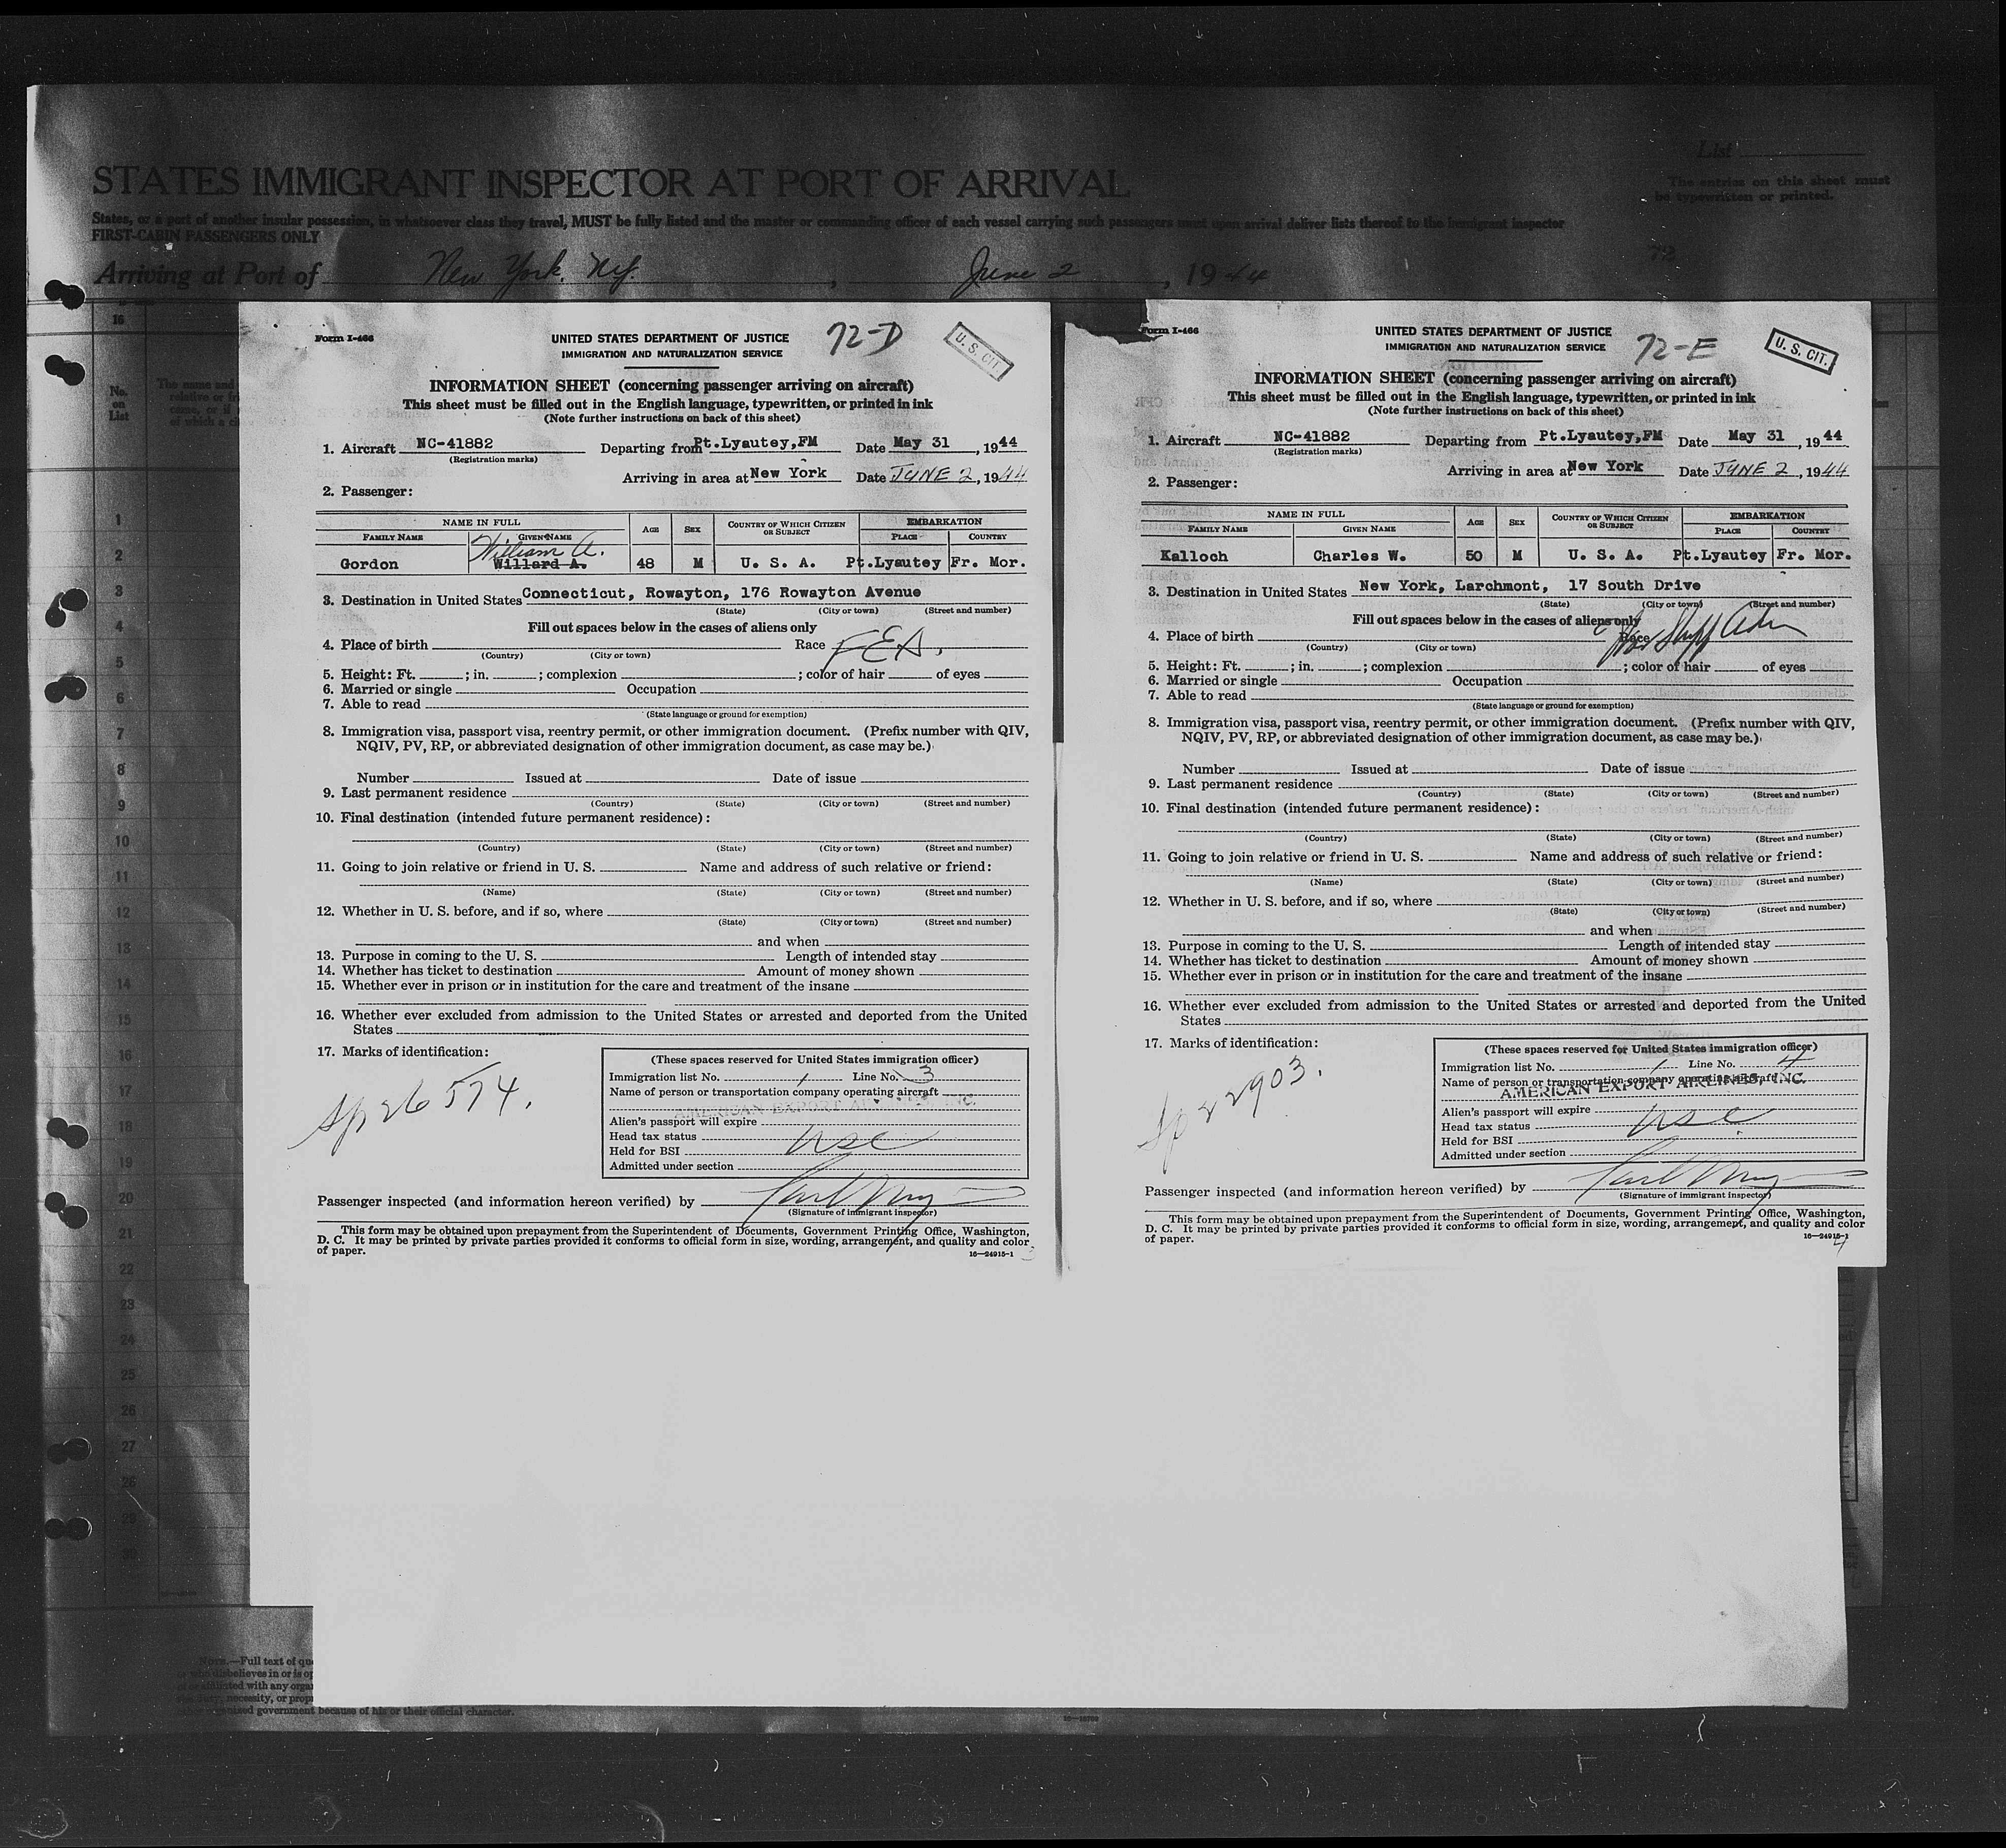 List
The entries on this sheet must
be typewritten or printed.
STATES IMMIGRANT INSPECTOR AT PORT OF ARRIVAL
States, or a port of another insular possession, in whatsoever class they travel, MUST be fully listed and the master or commanding officer of each vessel carrying such passengers must upon arrival deliver lists thereof to the immigrant inspector
FIRST-CABIN PASSENGERS ONLY
Arriving at Port of New York, N.Y. , June 2 , 1944
16
No. on List
The name and
relative or fr
1
2
3
4
5
6
7
8
9
10
11
12
13
14
15
16
17
18
19
20
21
22
23
24
25
26
27
28
29
30
Form I-466
UNITED STATES DEPARTMENT OF JUSTICE
IMMIGRATION AND NATURALIZATION SERVICE
72-D
U. S. CIT.
INFORMATION SHEET (concerning passenger arriving on aircraft)
This sheet must be filled out in the English language, typewritten, or printed in ink
(Note further instructions on back of this sheet)
1. Aircraft NC-41882 Departing from Pt.Lyautey,FM Date May 31 , 1944
(Registration marks)
Arriving in area at New York Date JUNE 2, 1944
2. Passenger:
NAME IN FULL AGE SEX COUNTRY OF WHICH CITIZEN OR SUBJECT EMBARKATION
FAMILY NAME GIVEN NAME PLACE COUNTRY
William A.
Gordon Willard A. 48 M U. S. A. Pt.Lyautey Fr. Mor.
3. Destination in United States Connecticut, Rowayton, 176 Rowayton Avenue
(State) (City or town) (Street and number)
Fill out spaces below in the cases of aliens only
4. Place of birth Race FEA.
(Country) (City or town)
5. Height: Ft. ; in. ; complexion ; color of hair of eyes
6. Married or single Occupation
7. Able to read
(State language or ground for exemption)
8. Immigration visa, passport visa, reentry permit, or other immigration document. (Prefix number with QIV,
NQIV, PV, RP, or abbreviated designation of other immigration document, as case may be.)
Number Issued at Date of issue
9. Last permanent residence
(Country) (State) (City or town) (Street and number)
10. Final destination (intended future permanent residence):
(Country) (State) (City or town) (Street and number)
11. Going to join relative or friend in U. S. Name and address of such relative or friend:
(Name) (State) (City or town) (Street and number)
12. Whether in U. S. before, and if so, where
(State) (City or town) (Street and number)
and when
13. Purpose in coming to the U. S. Length of intended stay
14. Whether has ticket to destination Amount of money shown
15. Whether ever in prison or in institution for the care and treatment of the insane
16. Whether ever excluded from admission to the United States or arrested and deported from the United
States
17. Marks of identification:
Sp 26574.
(These spaces reserved for United States immigration officer)
Immigration list No. 1 Line No. 3
Name of person or transportation company operating aircraft
AMERICAN EXPORT AIRLINES, INC.
Alien's passport will expire
Head tax status usc
Held for BSI
Admitted under section
Passenger inspected (and information hereon verified) by
(Signature of immigrant inspector)
This form may be obtained upon prepayment from the Superintendent of Documents, Government Printing Office, Washington,
D. C. It may be printed by private parties provided it conforms to official form in size, wording, arrangement, and quality and color
of paper.
16—24915-1
Form I-466
UNITED STATES DEPARTMENT OF JUSTICE
IMMIGRATION AND NATURALIZATION SERVICE
72-E
U. S. CIT.
INFORMATION SHEET (concerning passenger arriving on aircraft)
This sheet must be filled out in the English language, typewritten, or printed in ink
(Note further instructions on back of this sheet)
1. Aircraft NC-41882 Departing from Pt.Lyautey,FM Date May 31 , 1944
(Registration marks)
Arriving in area at New York Date JUNE 2 , 1944
2. Passenger:
NAME IN FULL AGE SEX COUNTRY OF WHICH CITIZEN OR SUBJECT EMBARKATION
FAMILY NAME GIVEN NAME PLACE COUNTRY
Kalloch Charles W. 50 M U. S. A. Pt.Lyautey Fr. Mor.
3. Destination in United States New York, Larchmont, 17 South Drive
(State) (City or town) (Street and number)
Fill out spaces below in the cases of aliens only
4. Place of birth Race
(Country) (City or town)
5. Height: Ft. ; in. ; complexion ; color of hair of eyes
6. Married or single Occupation
7. Able to read
(State language or ground for exemption)
8. Immigration visa, passport visa, reentry permit, or other immigration document. (Prefix number with QIV,
NQIV, PV, RP, or abbreviated designation of other immigration document, as case may be.)
Number Issued at Date of issue
9. Last permanent residence
(Country) (State) (City or town) (Street and number)
10. Final destination (intended future permanent residence):
(Country) (State) (City or town) (Street and number)
11. Going to join relative or friend in U. S. Name and address of such relative or friend:
(Name) (State) (City or town) (Street and number)
12. Whether in U. S. before, and if so, where
(State) (City or town) (Street and number)
and when
13. Purpose in coming to the U. S. Length of intended stay
14. Whether has ticket to destination Amount of money shown
15. Whether ever in prison or in institution for the care and treatment of the insane
16. Whether ever excluded from admission to the United States or arrested and deported from the United
States
17. Marks of identification:
Sp 22903.
(These spaces reserved for United States immigration officer)
Immigration list No. 1 Line No. 4
Name of person or transportation company operating aircraft
AMERICAN EXPORT AIRLINES, INC.
Alien's passport will expire
Head tax status usc
Held for BSI
Admitted under section
Passenger inspected (and information hereon verified) by
(Signature of immigrant inspector)
This form may be obtained upon prepayment from the Superintendent of Documents, Government Printing Office, Washington,
D. C. It may be printed by private parties provided it conforms to official form in size, wording, arrangement, and quality and color
of paper.
16—24915-1
NOTE.—Full text of qu
disbelieves in or is op
affiliated with any orga
duty, necessity, or prop
government because of his or their official character.